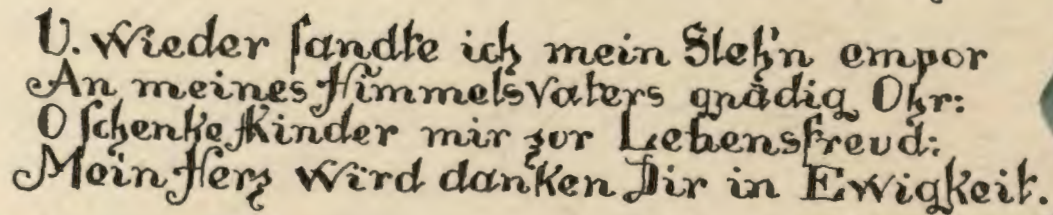 U. Wieder sandte ich mein Fleh'n empor
An meines HimmelsVaters gnädig Ohr:
O schenke Kinder mir zur Lebensfreud:
Mein Herz wird danken Dir in Ewigkeit.